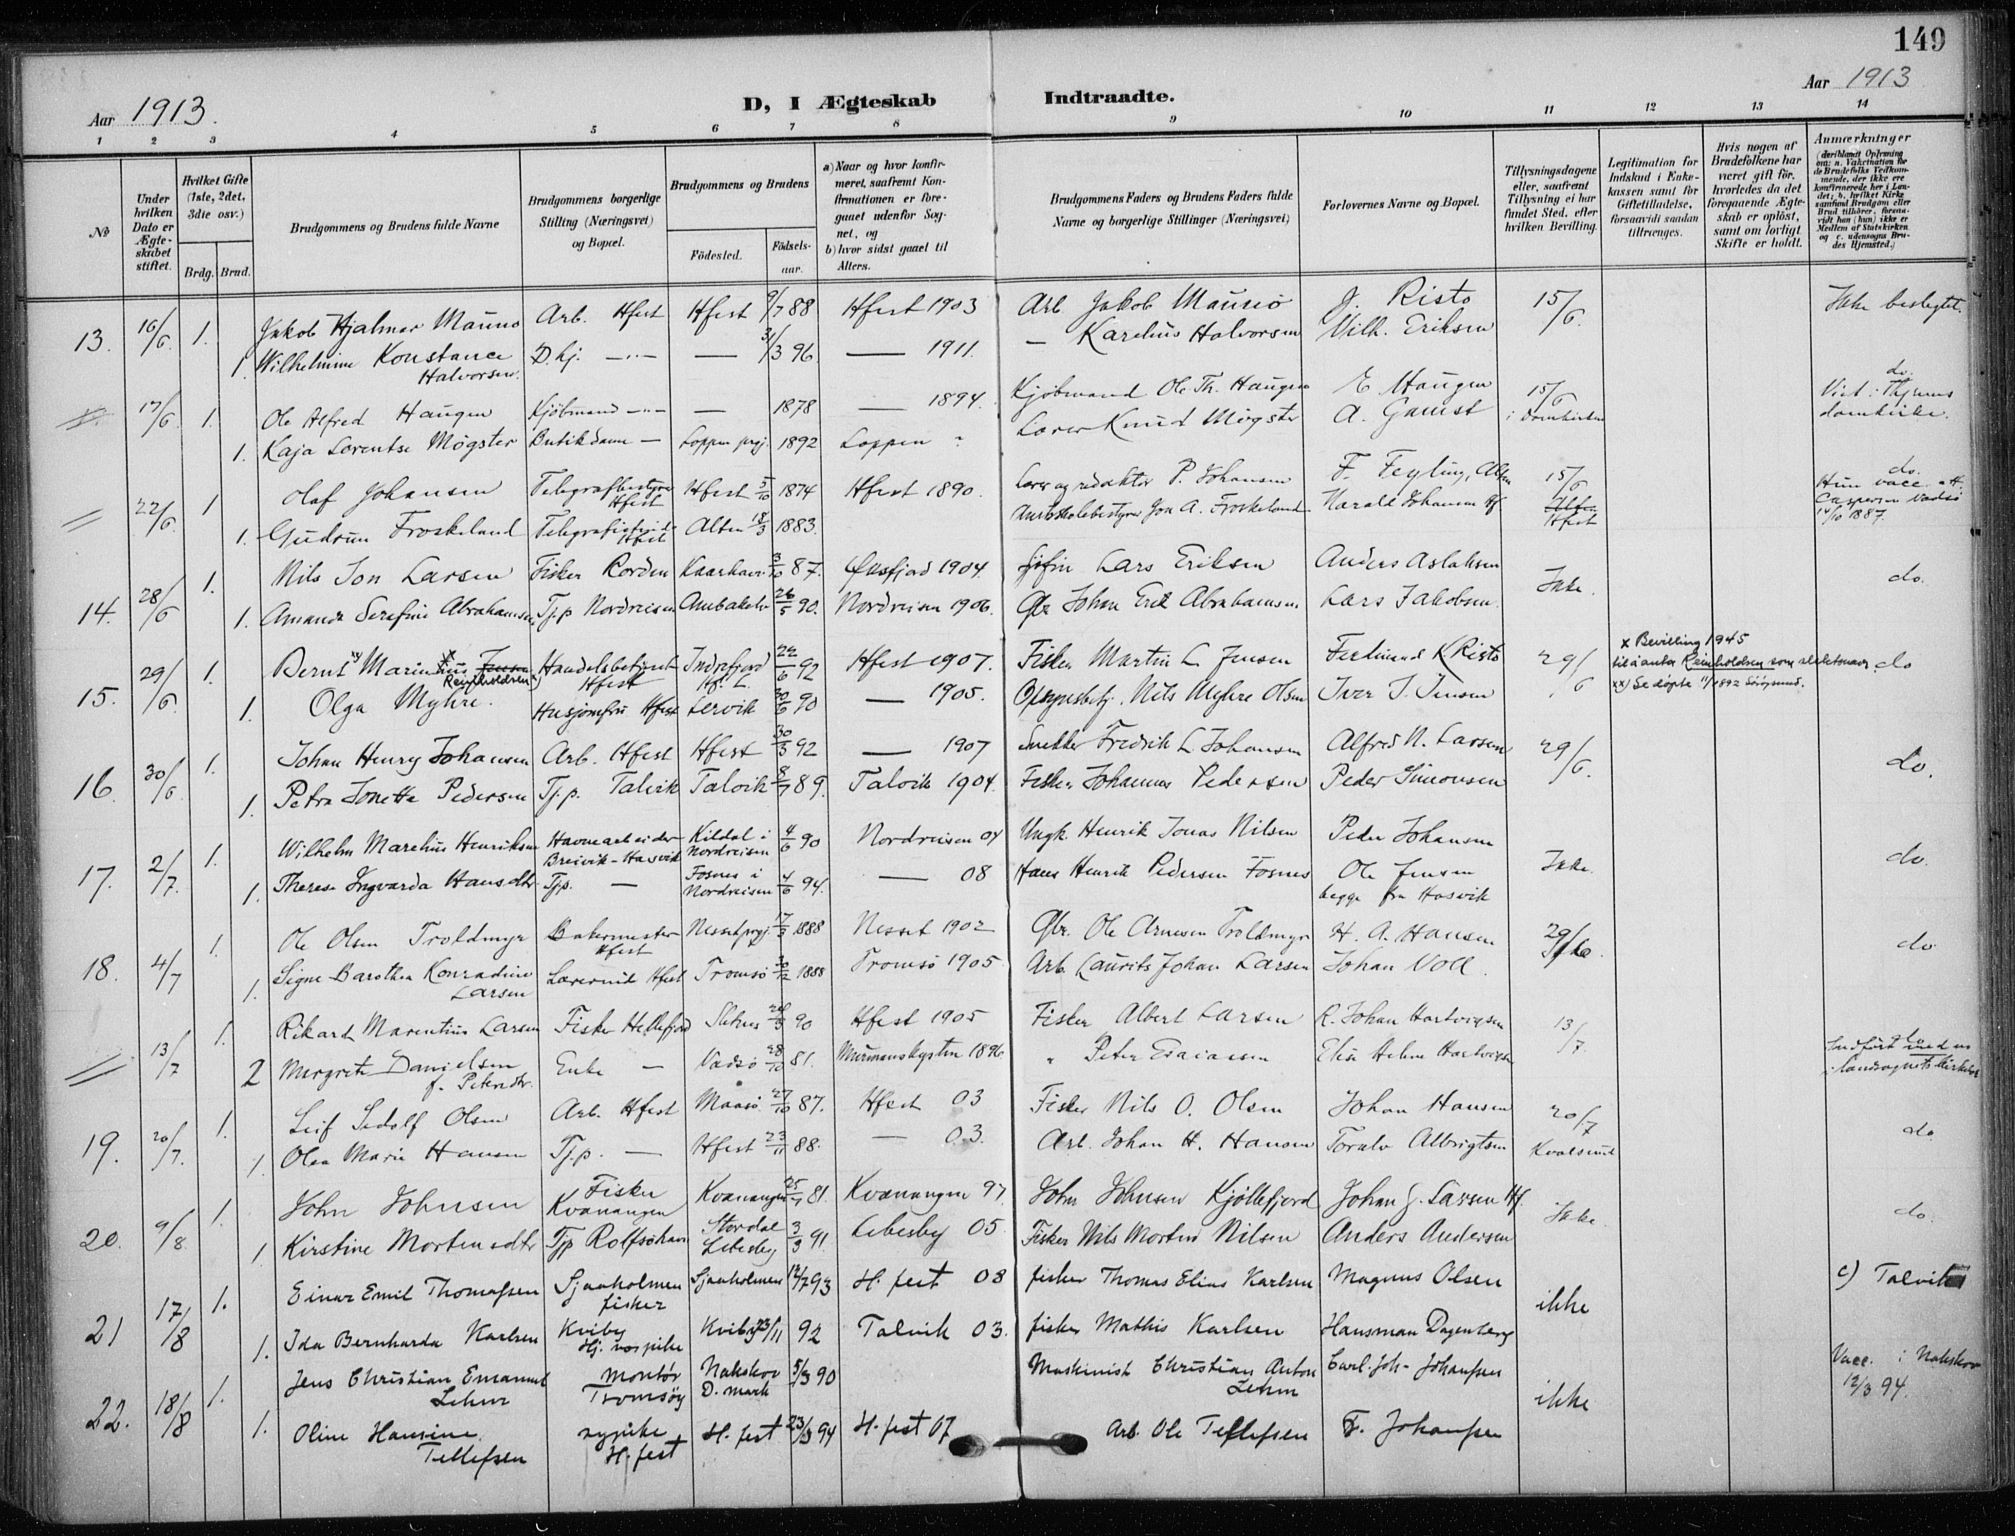 149
Aar 1913.
D, I Ægteskab Indtraadte.
Aar 1913
1 2 3 4 5 6 7 8 9 10 11 12 13 14
No
Under hvilken Dato er Ægte-skabet stiftet.
Hvilket Gifte (1ste, 2det, 3die osv.)
Brdg. Brud.
Brudgommens og Brudens fulde Navne
Brudgommens borgerlige Stilling (Næringsvei) og Bopæl.
Brudgommens og Brudens
Födested.
Födsels-aar.
a) Naar og hvor konfir-meret, saafremt Kon-firmationen er fore-gaaet udenfor Sog-net, og
b) hvor sidst gaaet til Alters.
Brudgommens Faders og Brudens Faders fulde Navne og borgerlige Stillinger (Næringsvei)
Forlovernes Navne og Bopæl.
Tillysningsdagene eller, saafremt Tillysning ei har fundet Sted, efter hvilken Bevilling.
Legitimation for Indskud i Enke-kassen samt for Giftetilladelse, forsaavidt saadan tiltrænges.
Hvis nogen af Brudefolkene har været gift för, hvorledes da det foregaaende Ægte-skab er oplöst, samt om lovligt Skifte er holdt.
Anmærkninger
(deriblandt Oplysning om: a. Vakcination for de Brudefolks Vedkom-mende, der ikke ere konfirmerede her i Lan-det; b. hvilket Kirke-samfund Brudgom eller Brud tilhörer, forsaa-vidt han (hun) ikke er Medlem af Statskirken og c. udensogns Bru-des Hjemsted.)
13. 16/6 1. Jakob Hjalmar Mauno Arb. Hfest Hfest 9/7 88 Hfest 1903 Arb. Jakob J. Risto 15/6. Ikke beslegtet.
1. Wilhelmine Konstance Halvorsen. D. hj. —"— — 31/3 96 — 1911. — Karelius Halvorsen Vilh. Eriksen
17/6 1. Ole Alfred Haugen Kjøbmand —"— — 1878 — 1894. Kjøbmand Ole Th. Haugen E. Haugen 15/6 i Domkirken do. Viet i domkirke.
1. Kaja Lorentse Møgster Butikdame — Loppen prgj. 1892 Loppen " Lærer Knud Møgster A. Gamst
22/6 1 Olaf Johansen Telegrafbestyrer Hfest Hfest 5/10 1874 Hfest 1890. Lærer og redaktør P. Johansen F. Feyling, Alten 15/6 Alten Hfest do. Hun vacc. Vadsø 14/10 1887.
1. Gudrun Froskeland Hfest Alten 18/3 1883. Jon A. Froskeland Harald Johansen Hf
14. 28/6 1. Nils Jon Larsen Fisker 3/10 87. Øksfjord 1904. Lars Eriksen Anders Aslaksen Ikke. do.
1. Amanda Serafine Abrahamsen Tj.p Nordreisen 26/5 90. Nordreisen 1906. Gbr Johan Erik Abrahamsen Lars Jakobsen
15. 29/6. 1. Bernt Marius Jensen Reinholdsen Handelsbetjent Hfest Indrefjord 22/6 92 Hfest 1907. Fisker Martin L. Jensen Ferdinand K Risto 29/6 x Bevilling 1945 til å anta Reinholdsen som slektsnavn xx) Se døpte 11/1892 Sørøysund. do
1. Olga Myhre. Husjomfru Hfest Lervik 30/6 90 — 1905. Opsynsbetj. Nils Myhre Olsen Iver J. Jensen
16. 30/6 1. Johan Henry Johansen Arb. Hfest Hfest 30/3 92 — 1907 Snekker Fredrik L Johansen Alfred N. Larsen 29/6. do.
1. Petra Jonette Pedersen Tj.p. Talvik Talvik 8/7 89. Talvik 1904. Fisker Johannes Pedersen Peder Simonsen
17. 2/7. 1. Wilhelm Marelius Henriksen Havnearbeider Breivik - Hasvik Kildal i Nordreisen 4/6 90 Nordreisen 04 Ungk. Henrik Jonas Nilsen Peder Johansen Ikke. do.
1. Therese Ingvarda Hansdtr Tj.p. — Fosnes i Nordreisen 4/6 94. — 08 Hans Henrik Pedersen Fosnes Ole Jensen begge fra Hasvik
18. 4/7 1. Ole Olsen Troldmyr Bakermester Hfest Nesset prgj. 17/3 1888 Nesset 1902 Gbr. Ole Arnesen Troldmyr H. A. Hansen 29/6. do
1. Signe Darothea Konradine Larsen Hfest Tromsø 30/12 1888 Tromsø 1905 Arb. Laurits Johan Larsen Johan Voll.
13/7 1. Rikard Marentius Larsen Fisker Hellefjord 90 Hfest 1905 Fisker Albert Larsen R. Johan Hartvigsen 13/7
2 Margrete Danielsen f. Petersdtr. Enke — Vadsø 28/10 81. Murmanskysten 1896 " Peter Esaiasen
19. 20/7. 1. Leif Sedolf Olsen Arb. Hfest Maasø 27/10 87. Hfest 03 Fisker Nils O. Olsen Johan Hansen 20/7 Kvalsund do
1. Olea Marie Hansen Tj.p. — Hfest 23/11 88. — 03. Arb. Johan H. Hansen Toralv Albrigtsen
20. 9/8. 1. John Johnsen Fisker Kvænangen Kvænangen 25/7 81. Kvænangen 97. John Johnsen Kjøllefjord Johan J. Larsen Hf. Ikke. do.
1 Kirstine Mortensdtr Tjp Rolfsøhavn Stordal Lebesby 3/3 91. Lebesby 05. Fisker Nils Morten Nilsen Anders Andersen
21 17/8 1. Einar Emil Thomassen Sjaaholmen fisker Sjaaholmen 12/7 93 H. fest 08 fisker Thomas Elius Karlsen Magnus Olsen ikke c) Talvik
1. Ida Bernharda Karlsen Kviby Kviby 23/11 92 Talvik 03. fisker Mathis Karlsen Hansman Dagenborg
22. 18/8 1. Jens Christian Emanuel Lehm montør Tromsøy Nakskov D.mark 5/3 90 Maskinist Christian Anton Lehm Carl Joh- Johansen ikke Vacc. i Nakskov 12/3 94.
1. Oline Hansine Tellefsen sypike H. fest H. fest 23/3 94 H. fest 07 Arb. Ole Tellefsen F. Johansen